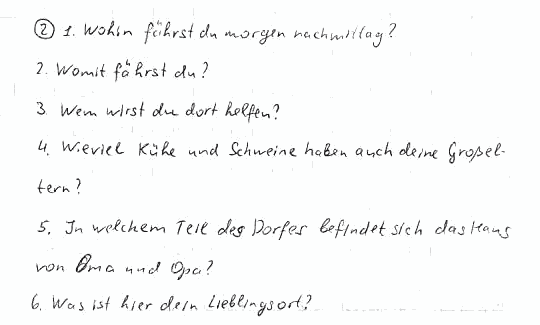 ② 1. Wohin fährst du morgen nachmittag?
2. Womit fährst du?
3. Wem wirst du dort helfen?
4. Wieviel Kühe und Schweine haben auch deine Großel-
tern?
5. In welchem Teil des Dorfes befindet sich das Haus
von Oma und Opa?
6. Was ist hier dein Lieblingsort?